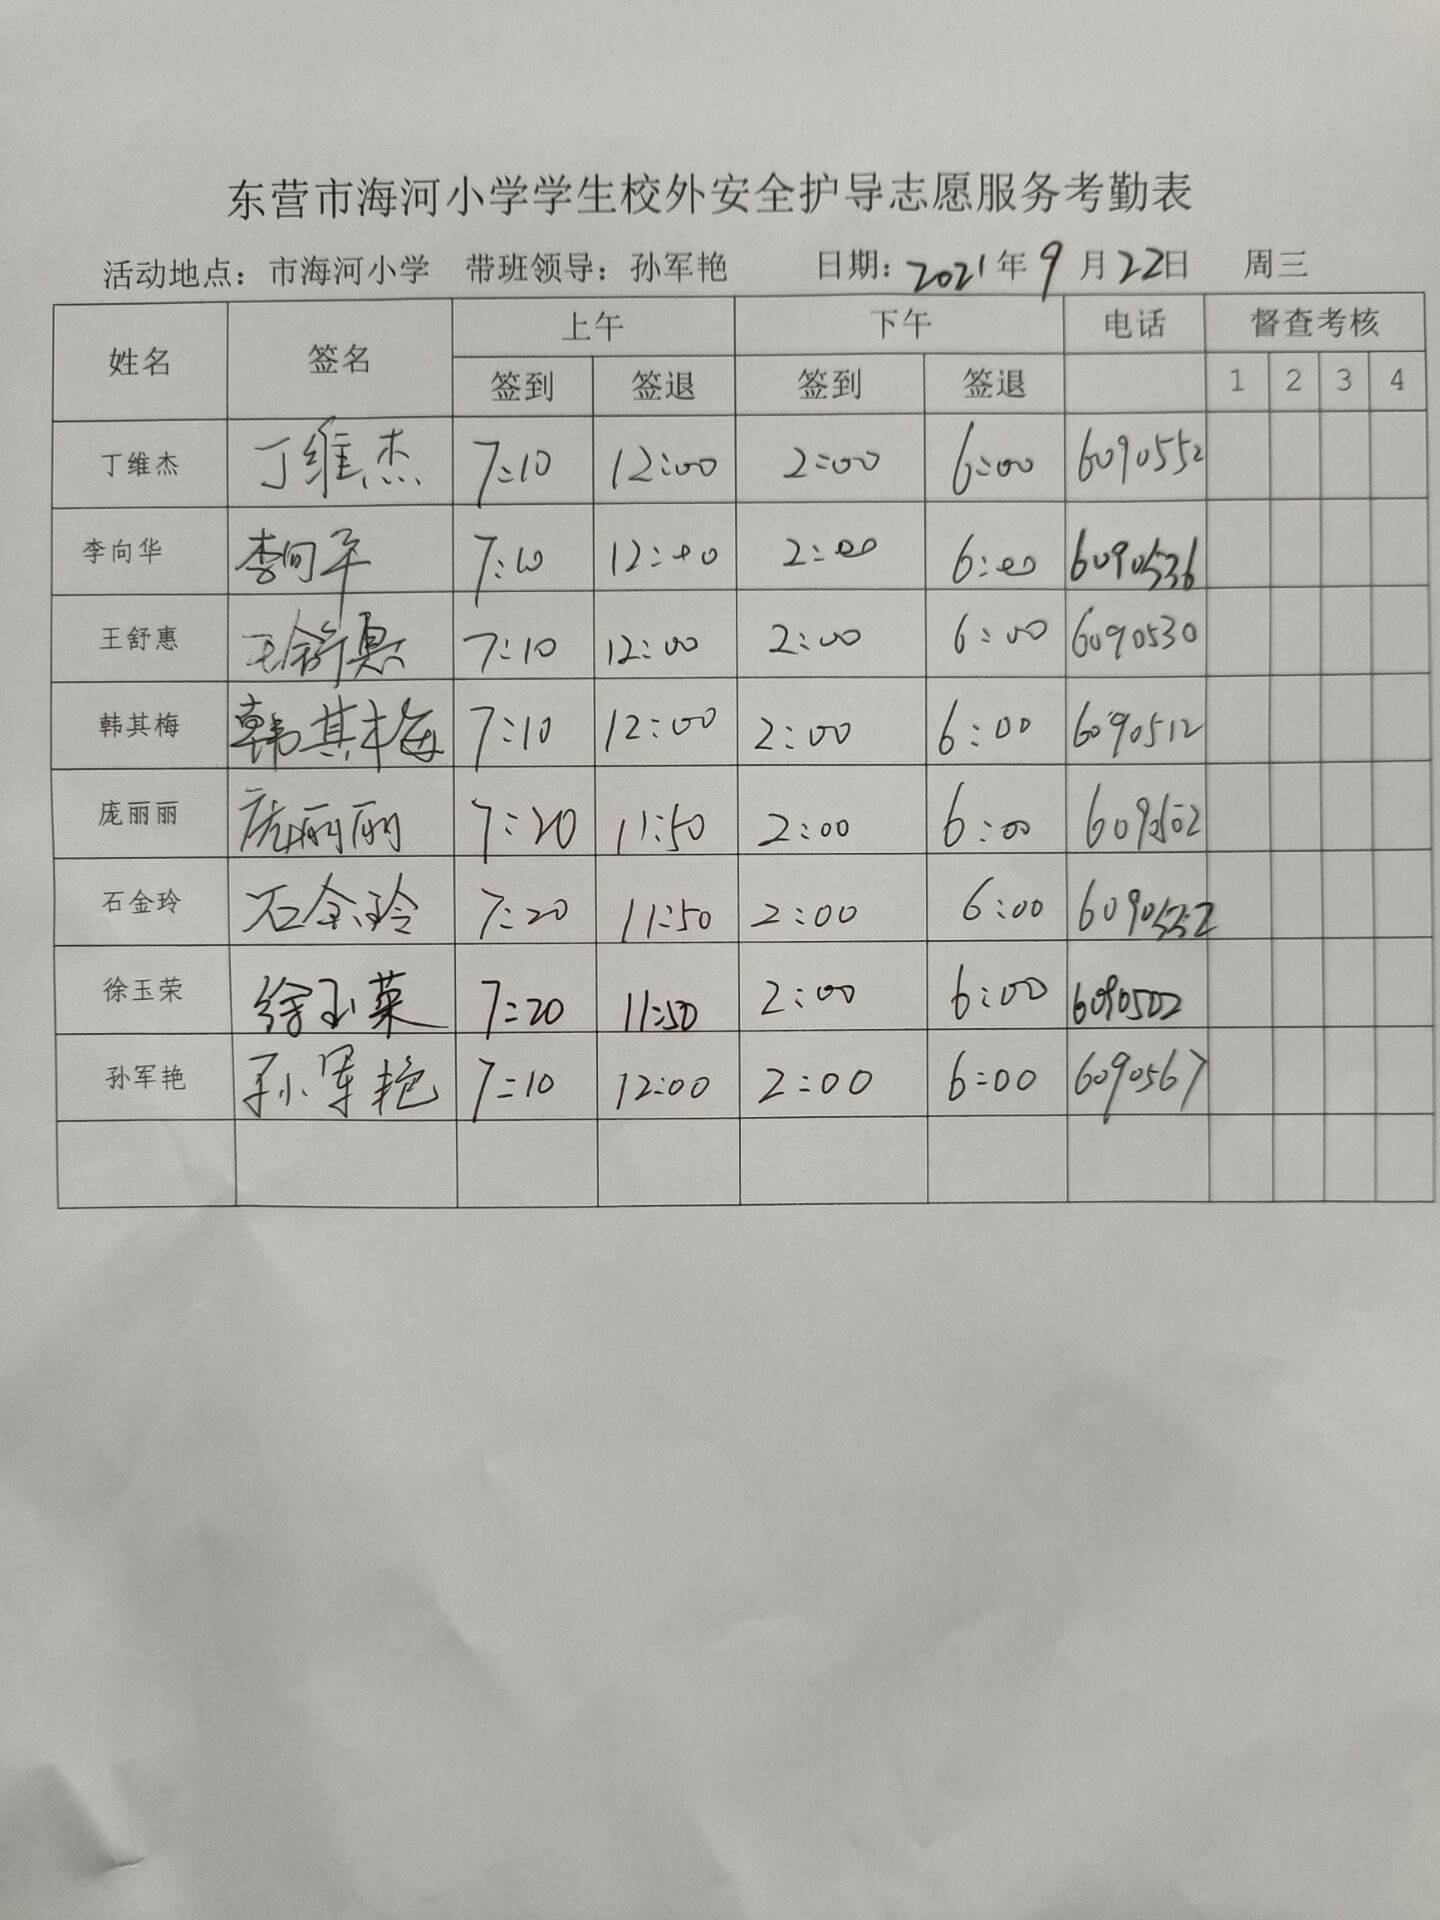 东营市海河小学学生校外安全护导志愿服务考勤表
活动地点：市海河小学 带班领导：孙军艳 日期：2021年9月22日 周三
姓名 签名 上午 下午 电话 督查考核
签到 签退 签到 签退 1 2 3 4
丁维杰 丁维杰 7:10 12:00 2:00 6:00 6090552
李向华 李向华 7:10 12:00 2:00 6:00 6090536
王舒惠 王舒惠 7:10 12:00 2:00 6:00 6090530
韩其梅 韩其梅 7:10 12:00 2:00 6:00 6090512
庞丽丽 庞丽丽 7:20 11:50 2:00 6:00
石金玲 石金玲 7:20 11:50 2:00 6:00
徐玉荣 徐玉荣 7:20 11:50 2:00 6:00 6090502
孙军艳 孙军艳 7:10 12:00 2:00 6:00 6090567